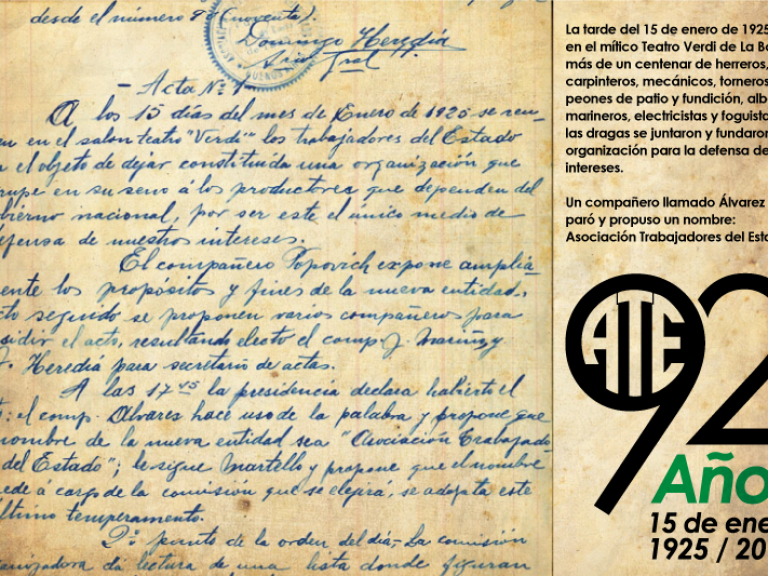 desde el número 90 (noventa).
Domingo Heredia
Srio Gral
- Acta Nº 1
A los 15 días del mes de Enero de 1925 se reu-
en en el salon teatro "Verdi" los trabajadores del Estado
el objeto de dejar constituida una organización que
rupe en su seno á los productores que dependen del
bierno nacional, por ser este el único medio de
efensa de nuestros intereses.
El compañero Popovich expone amplia-
ente los propósitos y fines de la nueva entidad.
cto segundo se proponen varios compañeros para
sidir el acto, resultando electo el comp. J. Mariñz y
Heredia para secretario de actas.
A las 17 45 la presidencia declara habierto el
el comp. Alvares hace uso de la palabra y propone que
nombre de la nueva entidad sea "Asociación Trabajado
del Estado"; le sigue Martello y propone que el nombre
ede á cargo de la comisión que se elegirá, se adopta este
ltimo temperamento.
2º punto de la orden del día,- La comisión
anizadora dá lectura de una lista donde figuran
La tarde del 15 de enero de 1925
en el mítico Teatro Verdi de La Bo
más de un centenar de herreros,
carpinteros, mecánicos, torneros
peones de patio y fundición, alb
marineros, electricistas y foguista
las dragas se juntaron y fundaron
organización para la defensa de
intereses.
Un compañero llamado Álvarez
paró y propuso un nombre:
Asociación Trabajadores del Esta
ATE
92
Año
15 de ene
1925 / 20